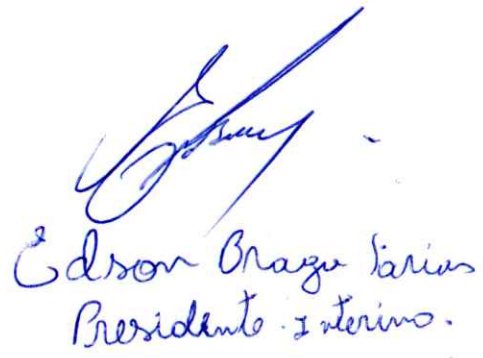 Edson Braga Farias
Presidente Interino.